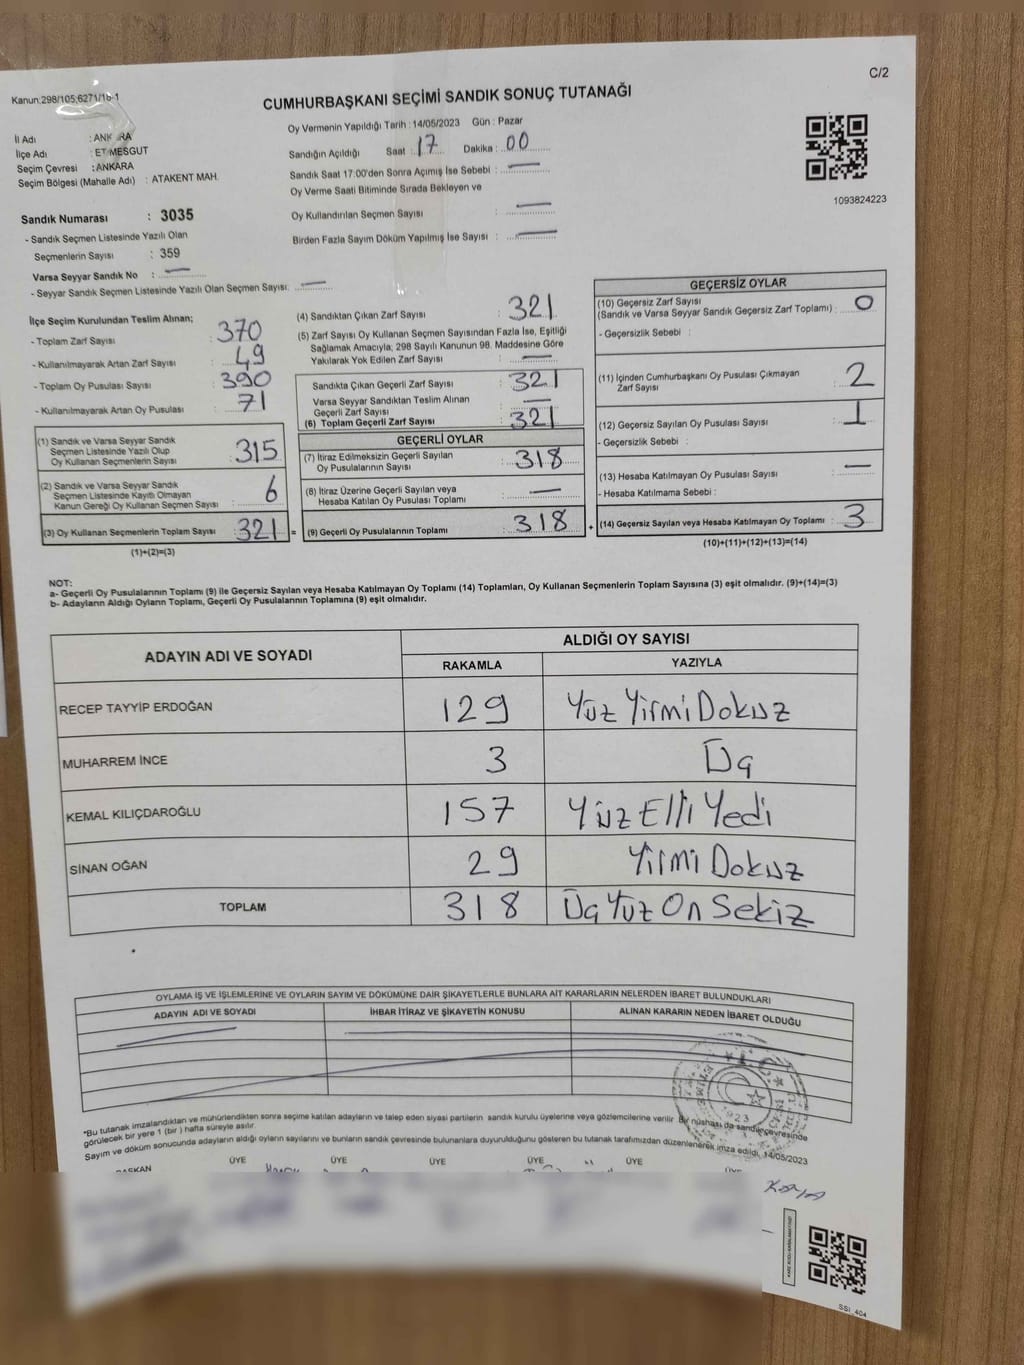 C/2
Kanun:298/105;6271/16-1
CUMHURBAŞKANI SEÇİMİ SANDIK SONUÇ TUTANAĞI
İl Adı : ANKARA
İlçe Adı : ETİMESGUT
Seçim Çevresi : ANKARA
Seçim Bölgesi (Mahalle Adı) : ATAKENT MAH.
Sandık Numarası : 3035
- Sandık Seçmen Listesinde Yazılı Olan
Seçmenlerin Sayısı : 359
Varsa Seyyar Sandık No : —
- Seyyar Sandık Seçmen Listesinde Yazılı Olan Seçmen Sayısı: —
Oy Vermenin Yapıldığı Tarih : 14/05/2023 Gün : Pazar
Sandığın Açıldığı Saat : 17 Dakika : 00
Sandık Saat 17:00'den Sonra Açımış İse Sebebi : —
Oy Verme Saati Bitiminde Sırada Bekleyen ve
Oy Kullandırılan Seçmen Sayısı : —
Birden Fazla Sayım Döküm Yapılmış İse Sayısı : —
1093824223
İlçe Seçim Kurulundan Teslim Alınan;
- Toplam Zarf Sayısı : 370
- Kullanılmayarak Artan Zarf Sayısı : 49
- Toplam Oy Pusulası Sayısı : 390
- Kullanılmayarak Artan Oy Pusulası : 71
(1) Sandık ve Varsa Seyyar Sandık
Seçmen Listesinde Yazılı Olup
Oy Kullanan Seçmenlerin Sayısı : 315
(2) Sandık ve Varsa Seyyar Sandık
Seçmen Listesinde Kayıtlı Olmayan
Kanun Gereği Oy Kullanan Seçmen Sayısı : 6
(3) Oy Kullanan Seçmenlerin Toplam Sayısı : 321 =
(1)+(2)=(3)
(4) Sandıktan Çıkan Zarf Sayısı : 321
(5) Zarf Sayısı Oy Kullanan Seçmen Sayısından Fazla İse, Eşitliği
Sağlamak Amacıyla, 298 Sayılı Kanunun 98. Maddesine Göre
Yakılarak Yok Edilen Zarf Sayısı : —
Sandıkta Çıkan Geçerli Zarf Sayısı : 321
Varsa Seyyar Sandıktan Teslim Alınan
Geçerli Zarf Sayısı : —
(6) Toplam Geçerli Zarf Sayısı : 321
GEÇERLİ OYLAR
(7) İtiraz Edilmeksizin Geçerli Sayılan
Oy Pusulalarının Sayısı : 318
(8) İtiraz Üzerine Geçerli Sayılan veya
Hesaba Katılan Oy Pusulası Toplamı : —
(9) Geçerli Oy Pusulalarının Toplamı : 318 +
GEÇERSİZ OYLAR
(10) Geçersiz Zarf Sayısı
(Sandık ve Varsa Seyyar Sandık Geçersiz Zarf Toplamı) : 0
- Geçersizlik Sebebi :
(11) İçinden Cumhurbaşkanı Oy Pusulası Çıkmayan
Zarf Sayısı : 2
(12) Geçersiz Sayılan Oy Pusulası Sayısı : 1
- Geçersizlik Sebebi :
(13) Hesaba Katılmayan Oy Pusulası Sayısı : —
- Hesaba Katılmama Sebebi :
(14) Geçersiz Sayılan veya Hesaba Katılmayan Oy Toplamı : 3
(10)+(11)+(12)+(13)=(14)
NOT:
a- Geçerli Oy Pusulalarının Toplamı (9) ile Geçersiz Sayılan veya Hesaba Katılmayan Oy Toplamı (14) Toplamları, Oy Kullanan Seçmenlerin Toplam Sayısına (3) eşit olmalıdır. (9)+(14)=(3)
b- Adayların Aldığı Oyların Toplamı, Geçerli Oy Pusulalarının Toplamına (9) eşit olmalıdır.
ADAYIN ADI VE SOYADI
ALDIĞI OY SAYISI
RAKAMLA YAZIYLA
RECEP TAYYİP ERDOĞAN 129 Yüz Yirmi Dokuz
MUHARREM İNCE 3 Üç
KEMAL KILIÇDAROĞLU 157 Yüz Elli Yedi
SİNAN OĞAN 29 Yirmi Dokuz
TOPLAM 318 Üç Yüz On Sekiz
OYLAMA İŞ VE İŞLEMLERİNE VE OYLARIN SAYIM VE DÖKÜMÜNE DAİR ŞİKAYETLERLE BUNLARA AİT KARARLARIN NELERDEN İBARET BULUNDUKLARI
ADAYIN ADI VE SOYADI İHBAR İTİRAZ VE ŞİKAYETİN KONUSU ALINAN KARARIN NEDEN İBARET OLDUĞU
T.C.
1923
*Bu tutanak imzalandıktan ve mühürlendikten sonra seçime katılan adayların ve talep eden siyasi partilerin sandık kurulu üyelerine veya gözlemcilerine verilir. Bir nüshası da sandık çevresinde
görülecek bir yere 1 (bir) hafta süreyle asılır.
Sayım ve döküm sonucunda adayların aldığı oyların sayılarını ve bunların sandık çevresinde bulunanlara duyurulduğunu gösteren bu tutanak tarafımızdan düzenlenerek imza edildi, 14/05/2023
BAŞKAN ÜYE ÜYE ÜYE ÜYE ÜYE ÜYE
SSI 404